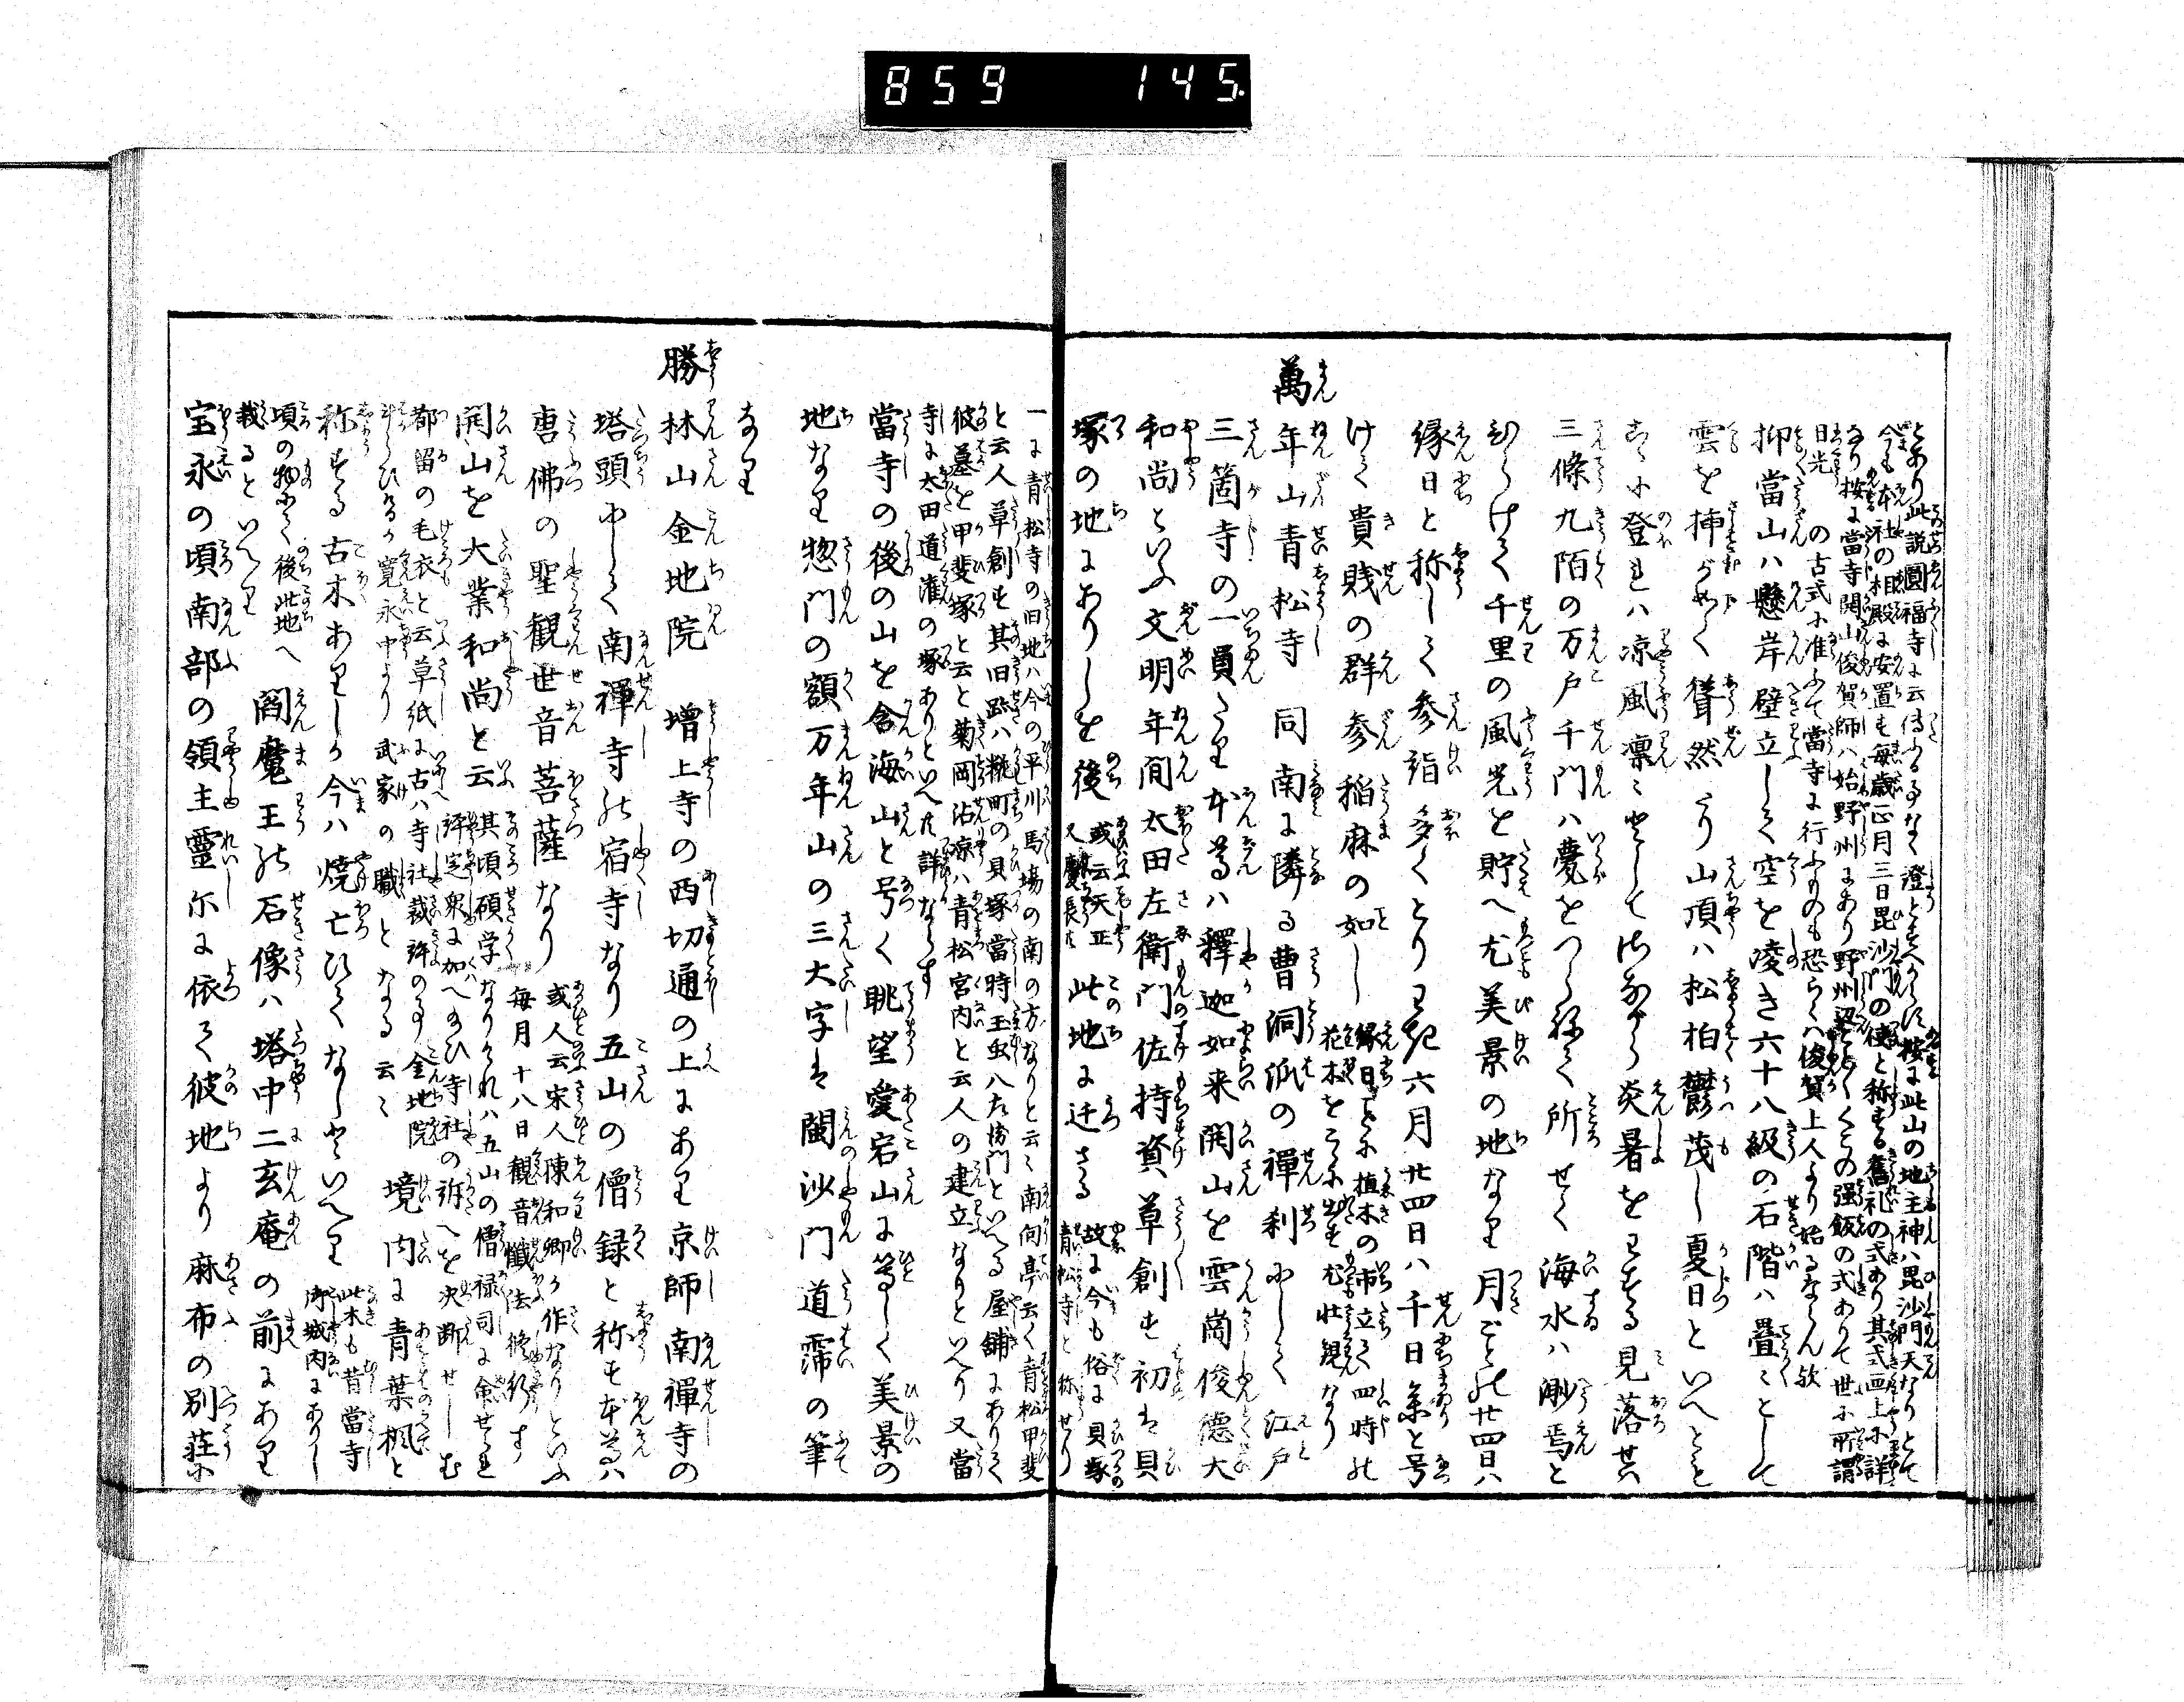 859 145.
とあり此説圓福寺に云傳ふる事なく證とすべからず按に此山の地主神ハ毘沙門天なりとて
今も本社の相殿に安置す毎歳正月三日毘沙門の使と称する舊礼の式あり其式皿上に詳
なり按に當寺開山俊賀師ハ始野州にあり野州の強飯の式ありて世に所謂
日光の古式に准ふて當寺に行ふものも恐らくハ俊賀上人より始るならん歟
抑當山ハ懸岸壁立して空を凌き六十八級の石階ハ疊々として
雲を挿がごとく聳然たり山頂ハ松柏鬱茂し夏日といへとも
こゝに登れハ凉風凛々としてさながら炎暑をわする見落せハ
三條九陌の万戸千門ハ甍をつらねて所せく海水ハ渺焉と
ひらけて千里の風光を貯へ尤美景の地なり月ごとの廿四日ハ
縁日と称して参詣多くとりわき六月廿四日ハ千日参と号
けて貴賤の群参稲麻の如し
縁日ことに植木の市立て四時の
花木をこゝに出す尤壮観なり
萬年山青松寺 同南に隣る曹洞派の禅刹にして江戸
三箇寺の一員たり本尊ハ釋迦如来開山を雲岡俊德大
和尚といふ文明年間太田左衛門佐持資草創す初は貝
塚の地にありしを後
或云天正
又慶長共
此地に迁さる
故に今も俗に貝塚の
青松寺と称せり
一に青松寺の旧地ハ今の平川馬場の南の方なりと云々南向亭云く青松甲斐
と云人草創す其旧趾ハ糀町の貝塚當時玉虫八左衛門といへる屋舗にありて
彼墓を甲斐塚と云と菊岡沾凉ハ青松宮内と云人の建立なりといへり又當
寺に太田道灌の塚ありといへ共詳ならす
當寺の後の山を含海山と号く眺望愛宕山に等しく美景の
地なり惣門の額万年山の三大字は閩沙門道霈の筆
なり
勝林山金地院 増上寺の西切通の上にあり京師南禅寺の
塔頭にして南禅寺の宿寺なり五山の僧録と称す本尊ハ
唐佛の聖観世音菩薩なり
或人云宋人陳和卿か作なりといふ
毎月十八日観音懺法修行す
開山を大業和尚と云
其頃碩学なりけれハ五山の僧禄司に命せられ
評定衆に加へ給ひ寺社の訴へを決断せしむ
都留の毛衣と云草紙に古ハ寺社裁許の事金地院
斗らひけるか寛永中より武家の職となる云々
境内に青葉楓と
称する古木ありしか今ハ焼亡ひてなしといへり
此木も昔當寺
御城内にありし
頃の物にて後此地へ
栽ると いへり
閻魔王の石像ハ塔中二玄庵の前にあり
宝永の頃南部の領主靈尓に依て彼地より麻布の別荘に